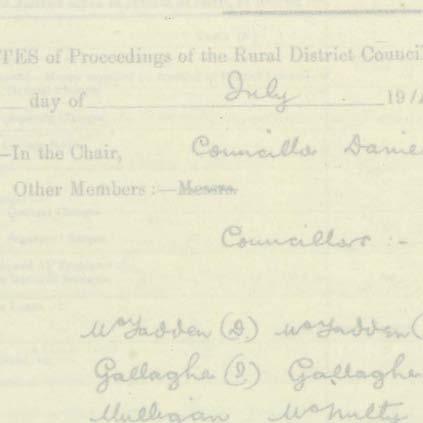 TES of Proceedings of the Rural District Counci
day of July 191
—In the Chair, Councillor Danie
Other Members :— Messrs.
Councillors :-
McFadden (D) McFadden (
Gallagher (J) Gallaghe
Mulligan McNulty